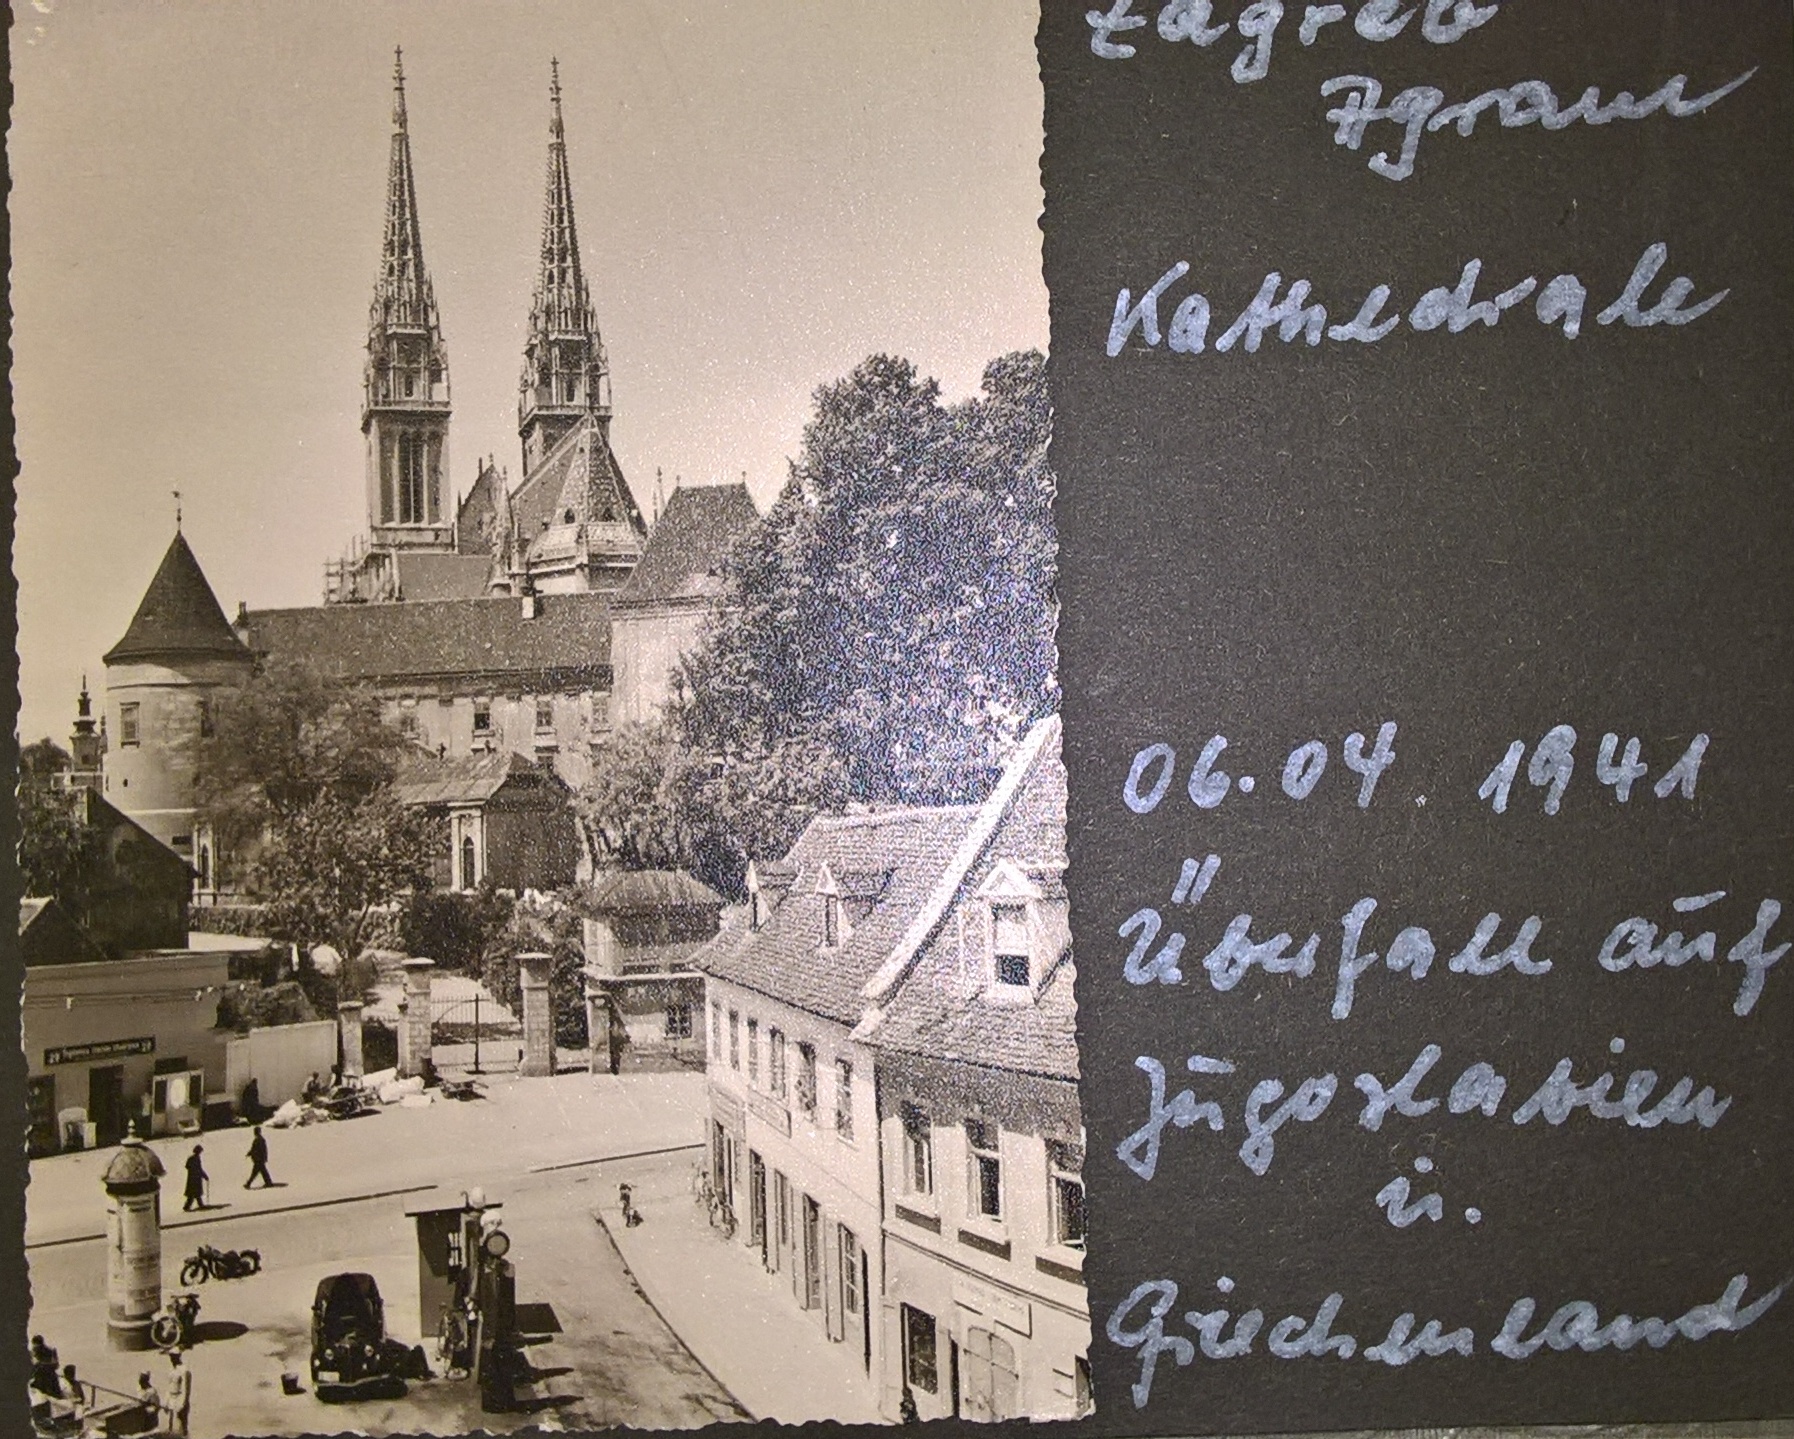 Zagreb
Agram
Kathedrale
06.04. 1941
Überfall auf
Jugoslavien
u.
Griechenland